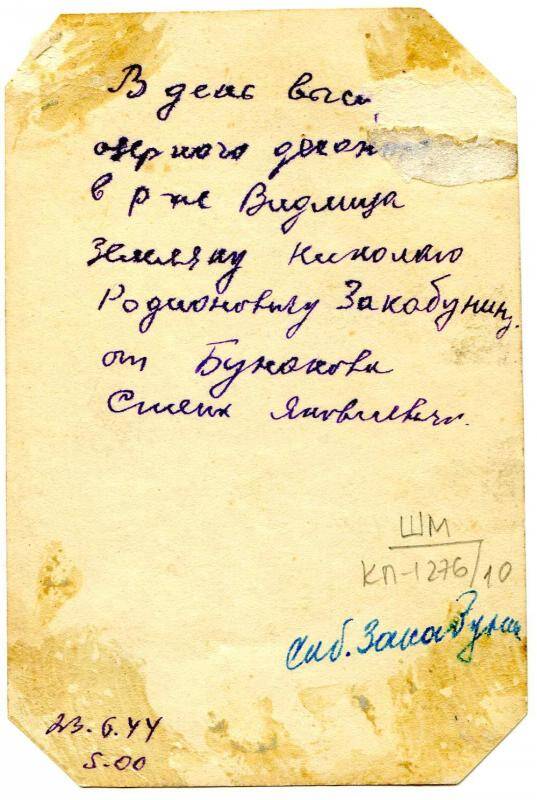 В день выс
озерного десан
в р-не Видлица
Земляку Николаю
Родионовичу Закобунину
от Бунакова
Яковлевича.
ШМ
КП-1276/10
Закабунин
23.6.44
5-00